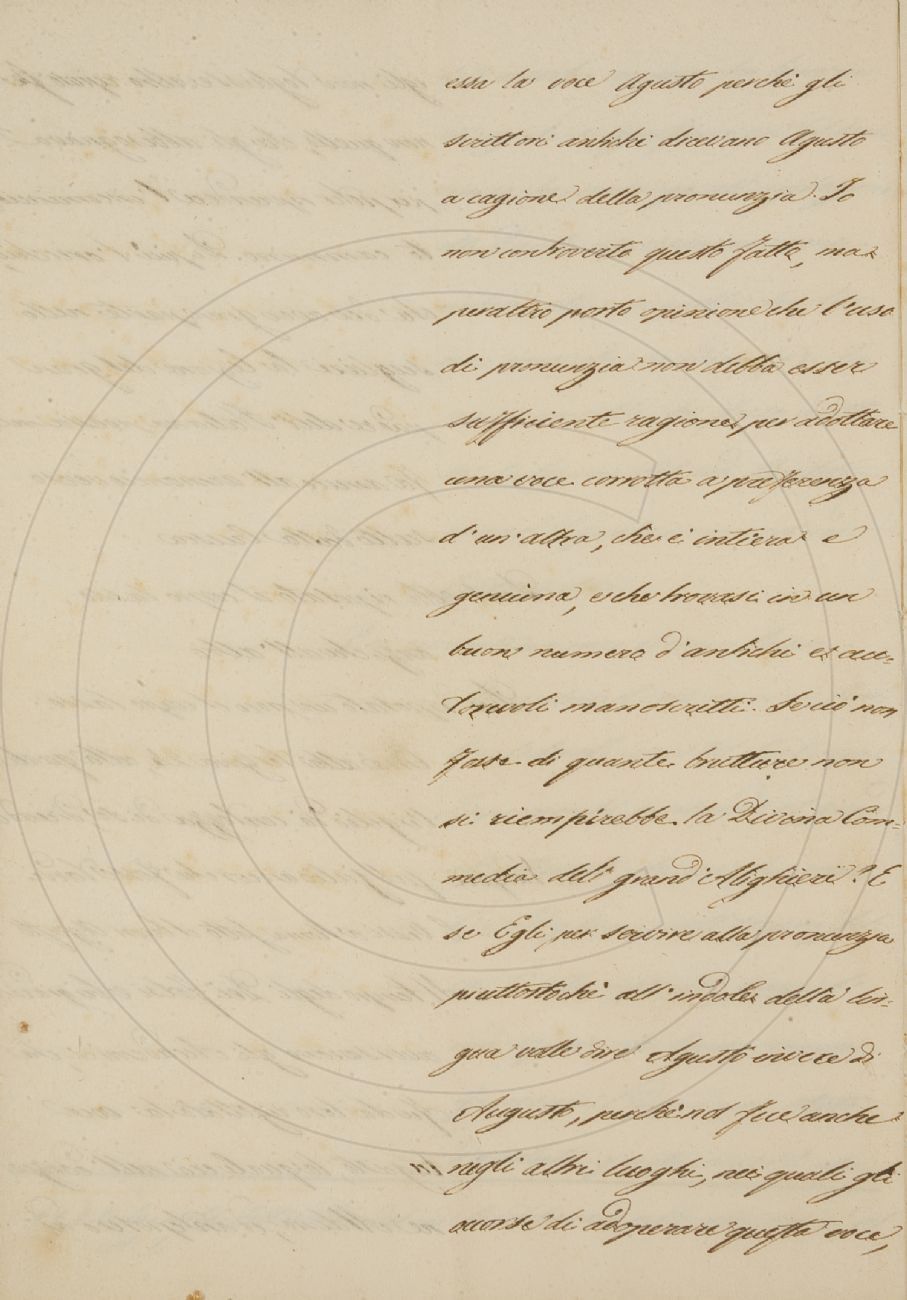 essa la voce Agusto perchè gli
scrittori antichi dicevano Agusto
a cagione della pronunzia. Io
non controverto questo fatto, ma
peraltro porto opinione che l'uso
di pronunzia non debba esser
sufficiente ragione per adottare
una voce corrotta a preferenza
d'un'altra, che è intiera e
genuina, e che trovasi in un
buon numero d'antichi et au-
torevoli manoscritti. Se ciò non
fosse di quante brutture non
si riempirebbe la Divina Com-
media del grand'Alighieri? E
se Egli per servire alla pronunzia
piuttostochè all'indole della lin-
gua volle dire Agusto invece di
Augusto, perchè nol fece anche
negli altri luoghi, nei quali gli
occorse di adoperare questa voce,